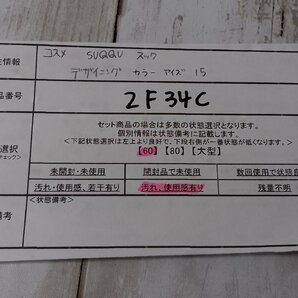 主情報 コスメ SUQQU スック
デザイニング カラー アイズ 15
品番号 2F34C
セット商品の場合は多数の状態選択となります。
個別情報は状態備考に記載します。
選択 <下記状態選択は左上より良好で、下段右側が一番状態が低くなります。>
チェック) 【60】【80】【大型】
未開封・未使用 開封品で未使用 数回使用で状態良
汚れ・使用感、若干有り 汚れ、使用感有り 残量不明
<状態備考>
備考